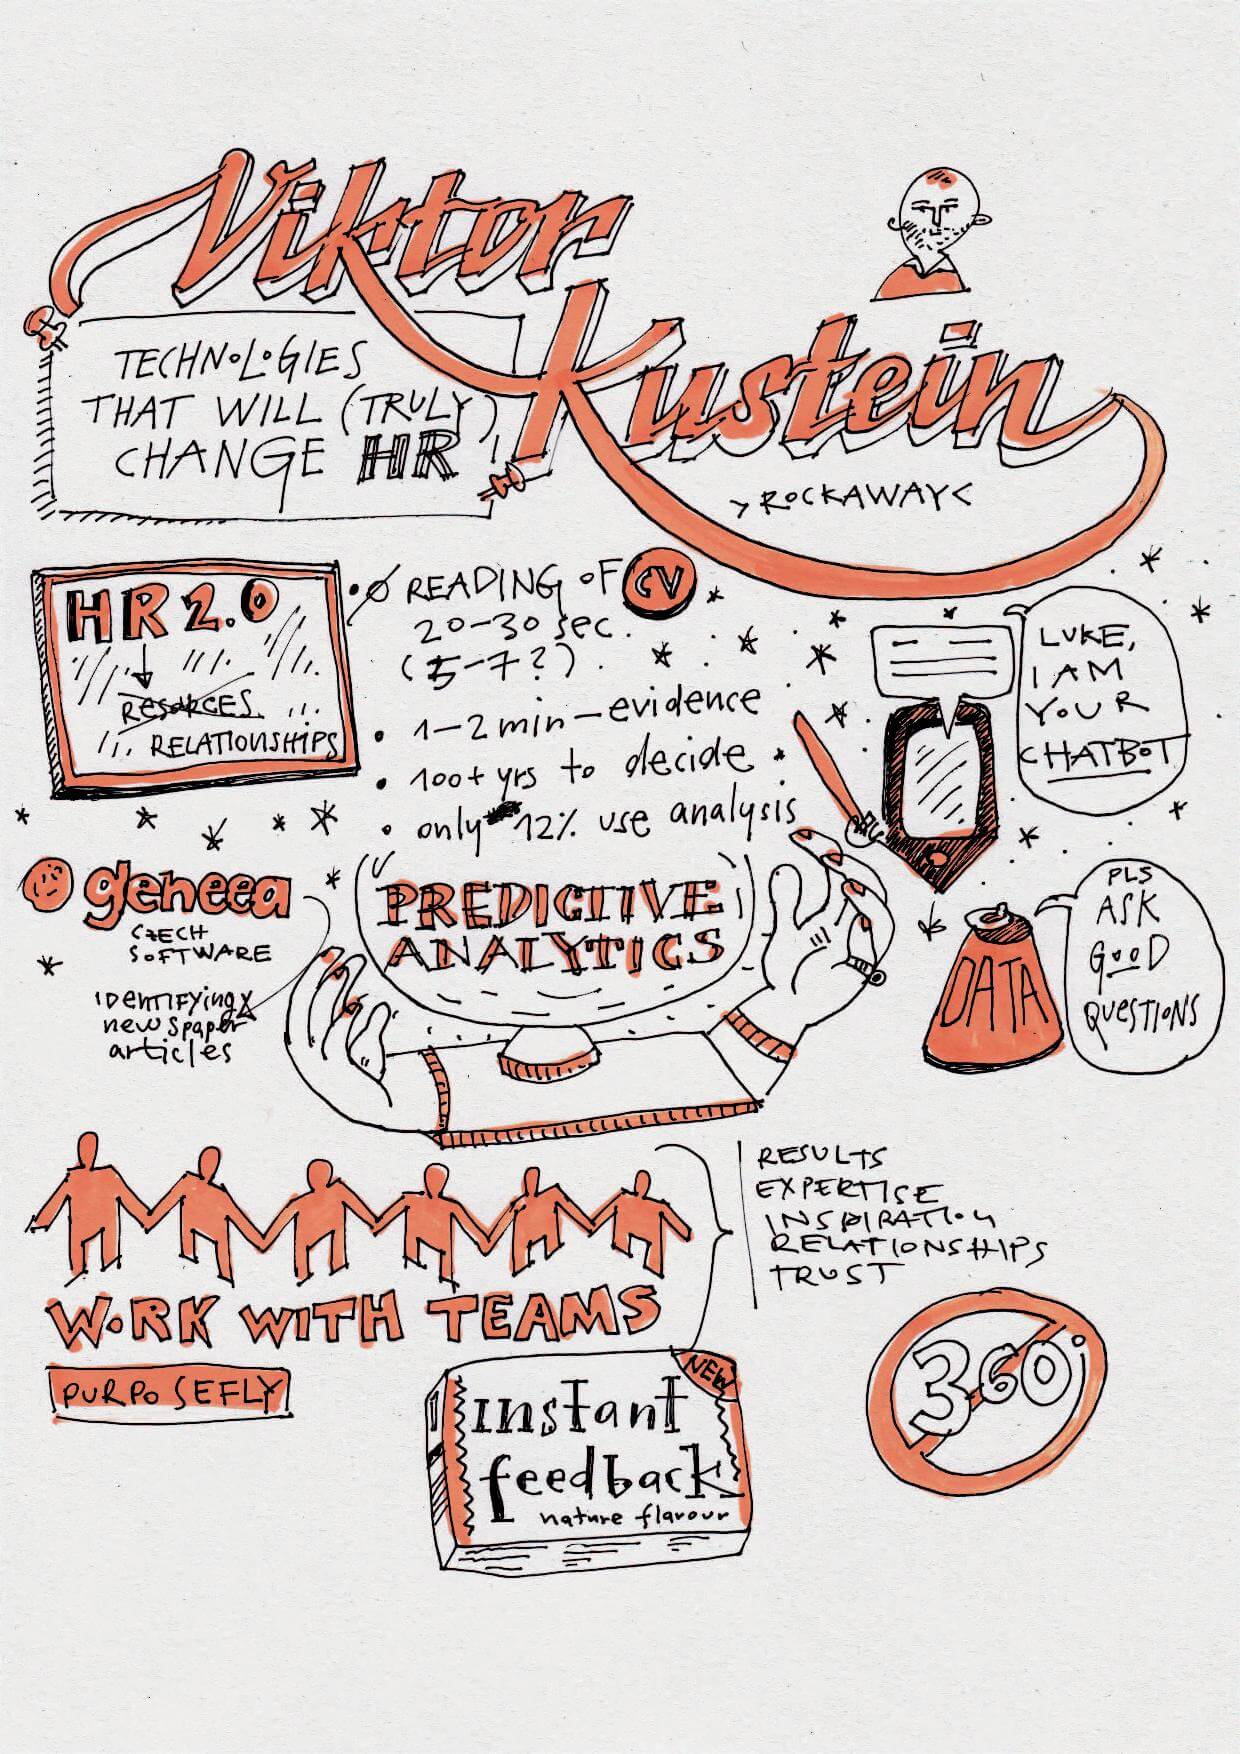 Viktor
Kustein
TECHNOLOGIES
THAT WILL (TRULY)
CHANGE HR
>ROCKAWAY<
HR 2.0
RESOURCES
RELATIONSHIPS
• Ø READING OF CV
20-30 sec.
(5-7?)
• 1-2 min - evidence
• 100+ yrs to decide
• only 12% use analysis
LUKE,
I AM
YOUR
CHATBOT
geneea
CZECH
SOFTWARE
IDENTIFYING
newspaper
articles
PREDICTIVE
ANALYTICS
DATA
PLS
ASK
GOOD
QUESTIONS
WORK WITH TEAMS
PURPOSEFLY
RESULTS
EXPERTISE
INSPIRATION
RELATIONSHIPS
TRUST
NEW
instant
feedback
nature flavour
360°